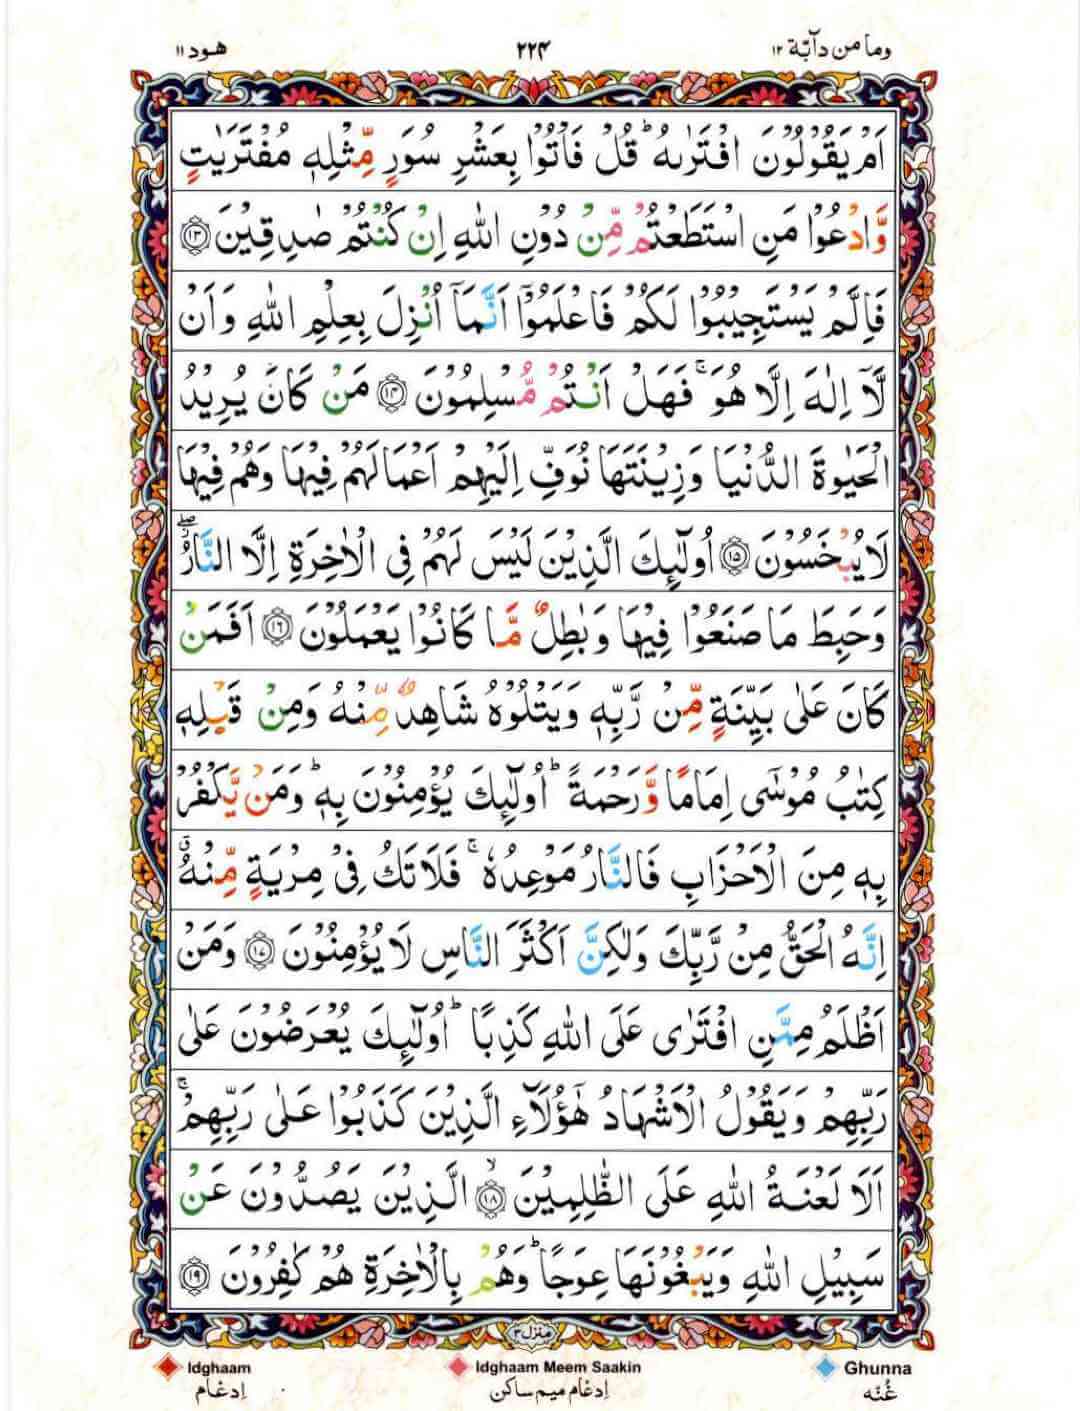 وما من دآبّة ١٢ ٢٢٤ هود ١١
اَمْ يَقُوْلُوْنَ افْتَرٰىهُ ؕ قُلْ فَاْتُوْا بِعَشْرِ سُوَرٍ مِّثْلِهٖ مُفْتَرَيٰتٍ
وَّادْعُوْا مَنِ اسْتَطَعْتُمْ مِّنْ دُوْنِ اللّٰهِ اِنْ كُنْتُمْ صٰدِقِيْنَ ۝۱۳
فَاِلَّمْ يَسْتَجِيْبُوْا لَكُمْ فَاعْلَمُوْۤا اَنَّمَاۤ اُنْزِلَ بِعِلْمِ اللّٰهِ وَاَنْ
لَّاۤ اِلٰهَ اِلَّا هُوَ ۚ فَهَلْ اَنْتُمْ مُّسْلِمُوْنَ ۝۱۴ مَنْ كَانَ يُرِيْدُ
الْحَيٰوةَ الدُّنْيَا وَزِيْنَتَهَا نُوَفِّ اِلَيْهِمْ اَعْمَالَهُمْ فِيْهَا وَهُمْ فِيْهَا
لَا يُبْخَسُوْنَ ۝۱۵ اُولٰٓئِكَ الَّذِيْنَ لَيْسَ لَهُمْ فِى الْاٰخِرَةِ اِلَّا النَّارُ ۖ
وَحَبِطَ مَا صَنَعُوْا فِيْهَا وَبٰطِلٌ مَّا كَانُوْا يَعْمَلُوْنَ ۝۱۶ اَفَمَنْ
كَانَ عَلٰى بَيِّنَةٍ مِّنْ رَّبِّهٖ وَيَتْلُوْهُ شَاهِدٌ مِّنْهُ وَمِنْ قَبْلِهٖ
كِتٰبُ مُوْسٰٓى اِمَامًا وَّرَحْمَةً ؕ اُولٰٓئِكَ يُؤْمِنُوْنَ بِهٖ ؕ وَمَنْ يَّكْفُرْ
بِهٖ مِنَ الْاَحْزَابِ فَالنَّارُ مَوْعِدُهٗ ۚ فَلَا تَكُ فِيْ مِرْيَةٍ مِّنْهُ ۗ
اِنَّهُ الْحَقُّ مِنْ رَّبِّكَ وَلٰكِنَّ اَكْثَرَ النَّاسِ لَا يُؤْمِنُوْنَ ۝۱۷ وَمَنْ
اَظْلَمُ مِمَّنِ افْتَرٰى عَلَى اللّٰهِ كَذِبًا ؕ اُولٰٓئِكَ يُعْرَضُوْنَ عَلٰى
رَبِّهِمْ وَيَقُوْلُ الْاَشْهَادُ هٰٓؤُلَآءِ الَّذِيْنَ كَذَبُوْا عَلٰى رَبِّهِمْ ۚ
اَلَا لَعْنَةُ اللّٰهِ عَلَى الظّٰلِمِيْنَ ۝۱۸ۙ الَّذِيْنَ يَصُدُّوْنَ عَنْ
سَبِيْلِ اللّٰهِ وَيَبْغُوْنَهَا عِوَجًا ؕ وَهُمْ بِالْاٰخِرَةِ هُمْ كٰفِرُوْنَ ۝۱۹
منزل ٣
Idghaam Idghaam Meem Saakin Ghunna
اِدغام اِدغام میم ساکن غُنّه